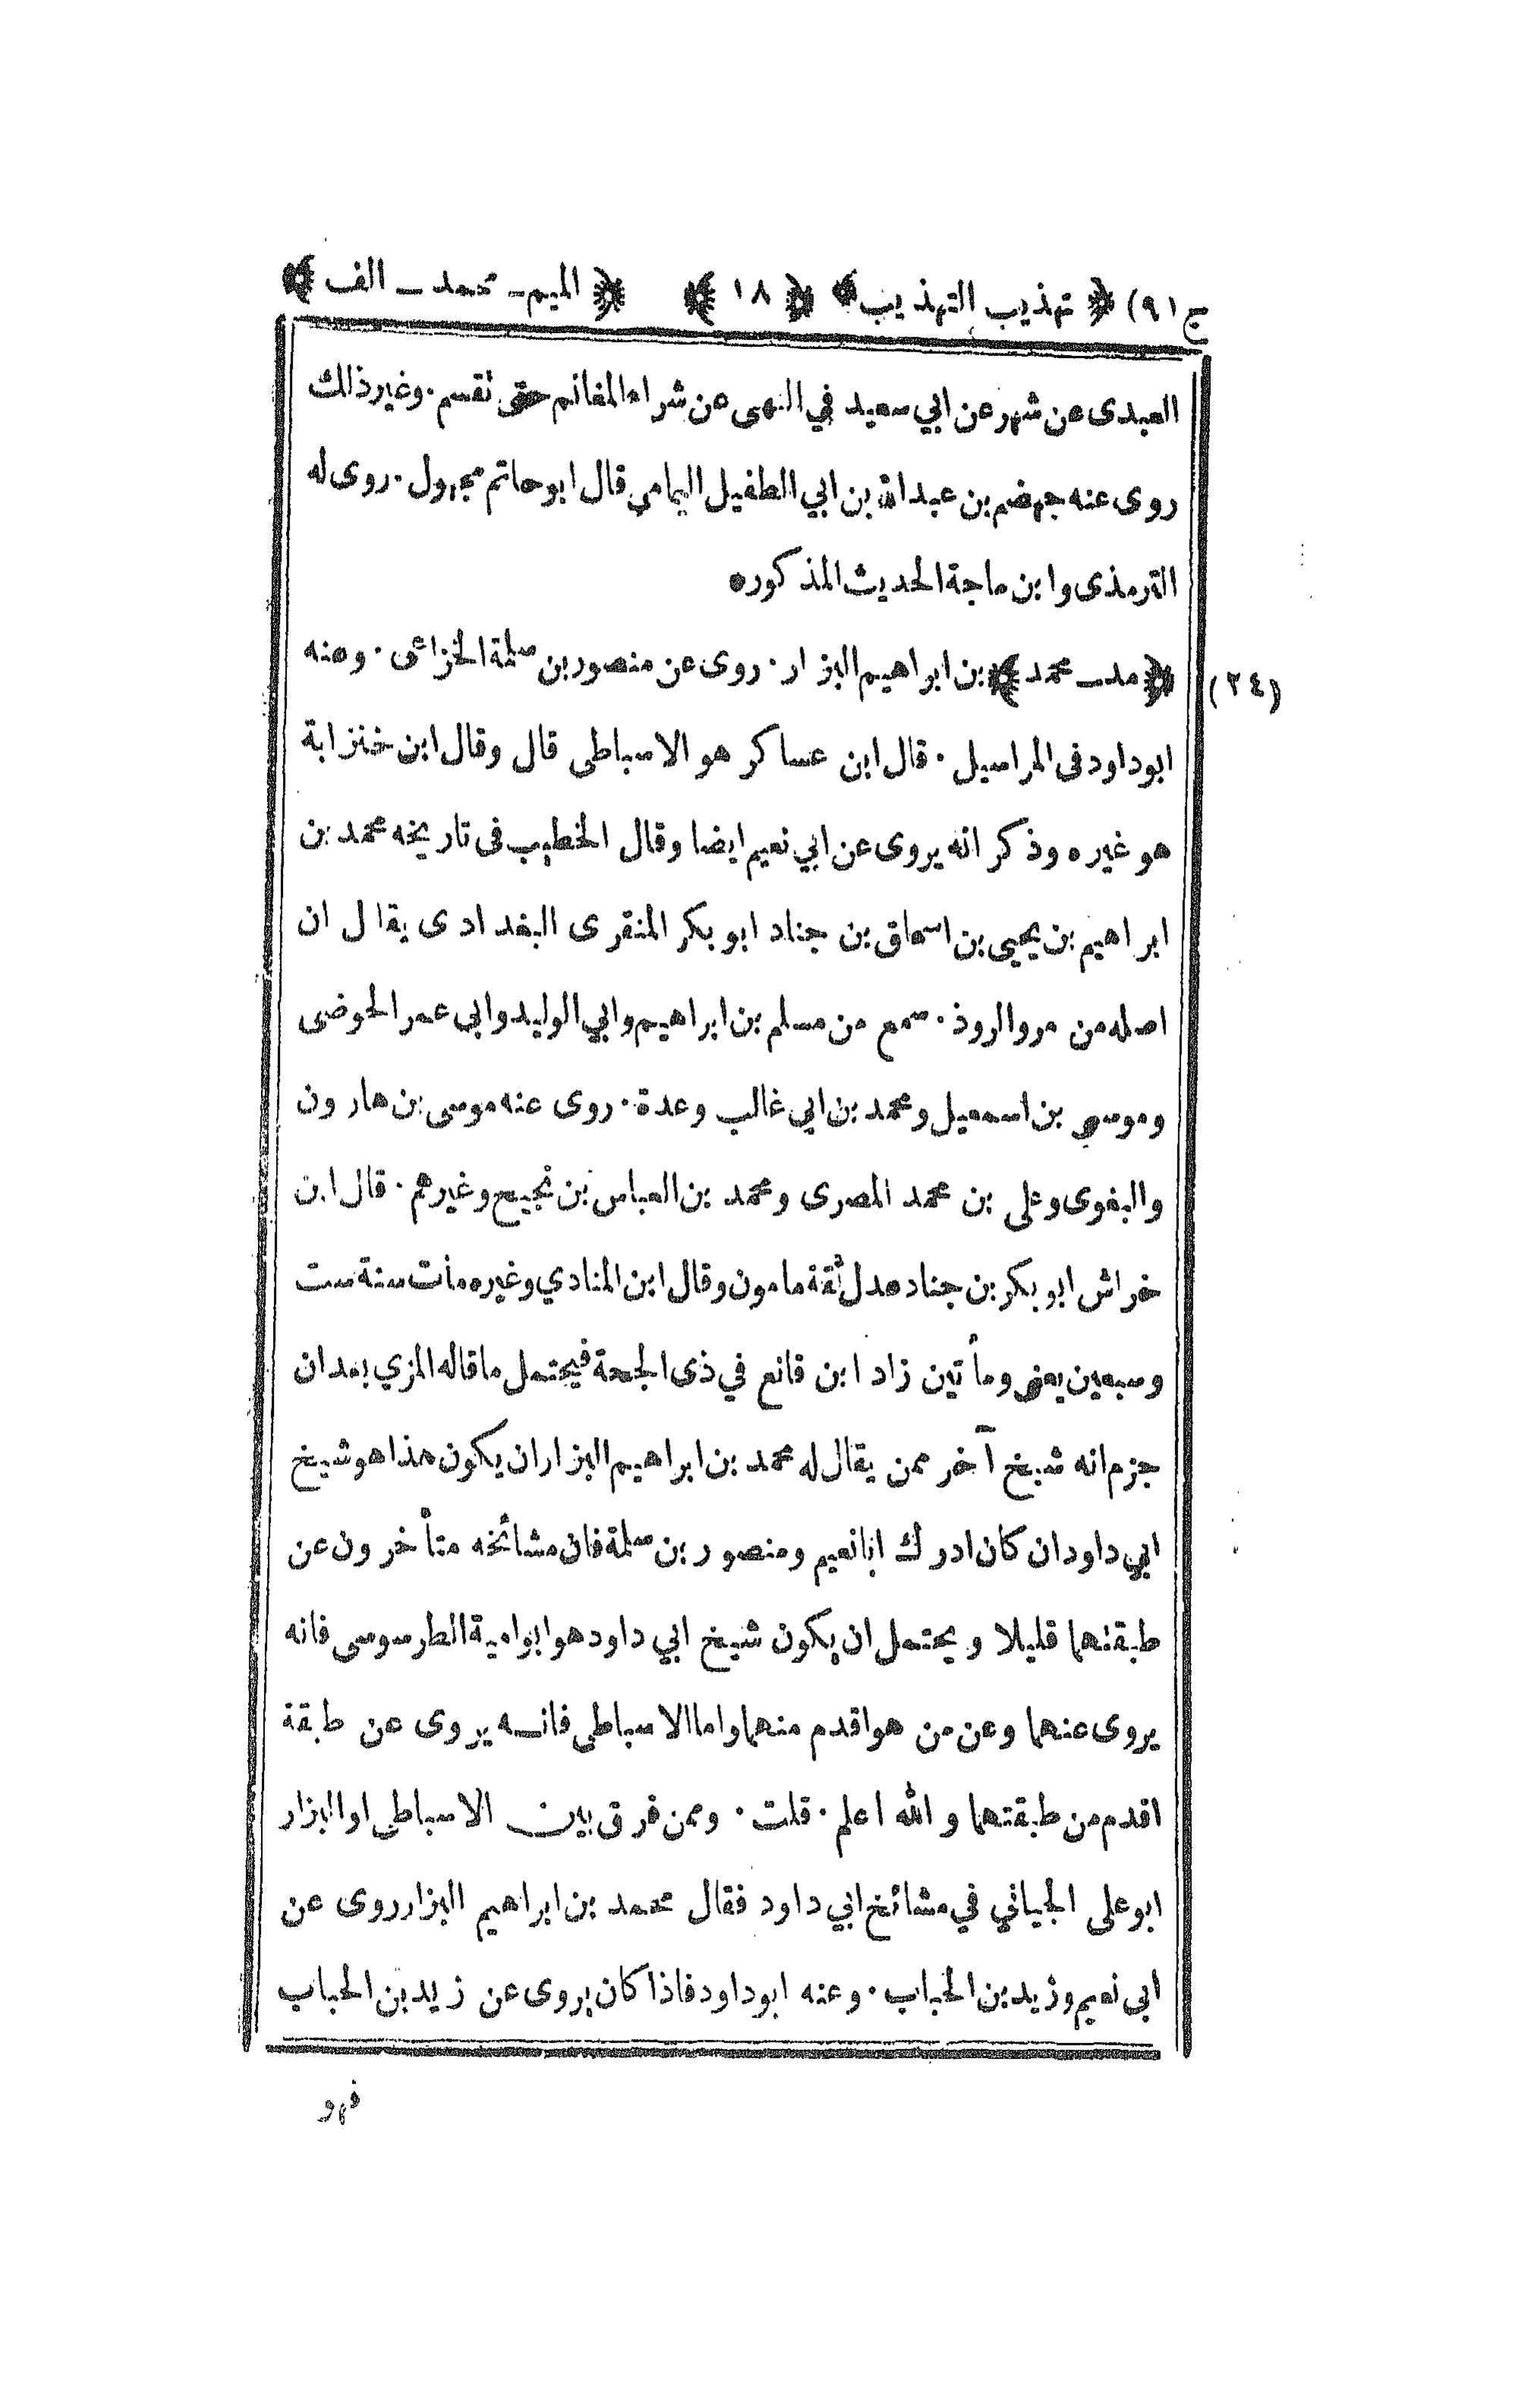 ج (٩١) ﴿ تهذيب التهذيب ﴾ ﴿ ١٨ ﴾ ﴿ الميم ـ محمد ـ الف ﴾
العبدى عن شهر عن ابي سعيد في النهى عن شراء المغانم حتى تقسم ٠ وغير ذلك
روى عنه جهضم بن عبدالله بن ابي الطفيل اليمامي قال ابو حاتم مجهول ٠ روى له
الترمذى وابن ماجة الحديث المذكور ه
(٢٤) ﴿ مد ـ محمد ﴾ بن ابراهيم البزار ٠ روى عن منصور بن سلمة الخزاعى ٠ وعنه
ابو داود فى المراسيل ٠ قال ابن عساكر هو الاسباطى قال وقال ابن خنزابة
هو غيره وذكر انه يروى عن ابي نعيم ايضا وقال الخطيب فى تاريخه محمد بن
ابراهيم بن يحيى بن اسحاق بن جناد ابو بكر المنقرى البغدادى يقال ان
اصله من مرو الروذ ٠ سمع من مسلم بن ابراهيم وابي الوليد وابى عمر الحوضى
وموسى بن اسمعيل ومحمد بن ابي غالب وعدة ٠ روى عنه موسى بن هارون
والبغوى وعلى بن محمد المصرى ومحمد بن العباس بن نجيح وغيرهم ٠ قال ابن
خراش ابو بكر بن جناد عدل ثقة مامون وقال ابن المنادي وغيره مات سنة ست
وسبعين يعنى ومأتين زاد ابن قانع في ذى الحجة فيحتمل ما قاله المزي بعد ان
جزم انه شيخ آخر ممن يقال له محمد بن ابراهيم البزار ان يكون هذا هو شيخ
ابي داود ان كان ادرك ابا نعيم ومنصور بن سلمة فان مشائخه متأخرون عن
طبقتهما قليلا ويحتمل ان يكون شيخ ابي داود هو ابو امية الطرسوسى فانه
يروى عنهما وعن من هو اقدم منهما واما الاسباطى فانه يروى عن طبقة
اقدم من طبقتهما والله اعلم ٠ قلت ٠ وممن فرق بين الاسباطى او البزار
ابو على الجياني في مشائخ ابي داود فقال محمد بن ابراهيم البزار روى عن
ابى نعيم وزيد بن الحباب ٠ وعنه ابو داود فاذا كان يروى عن زيد بن الحباب
فهو